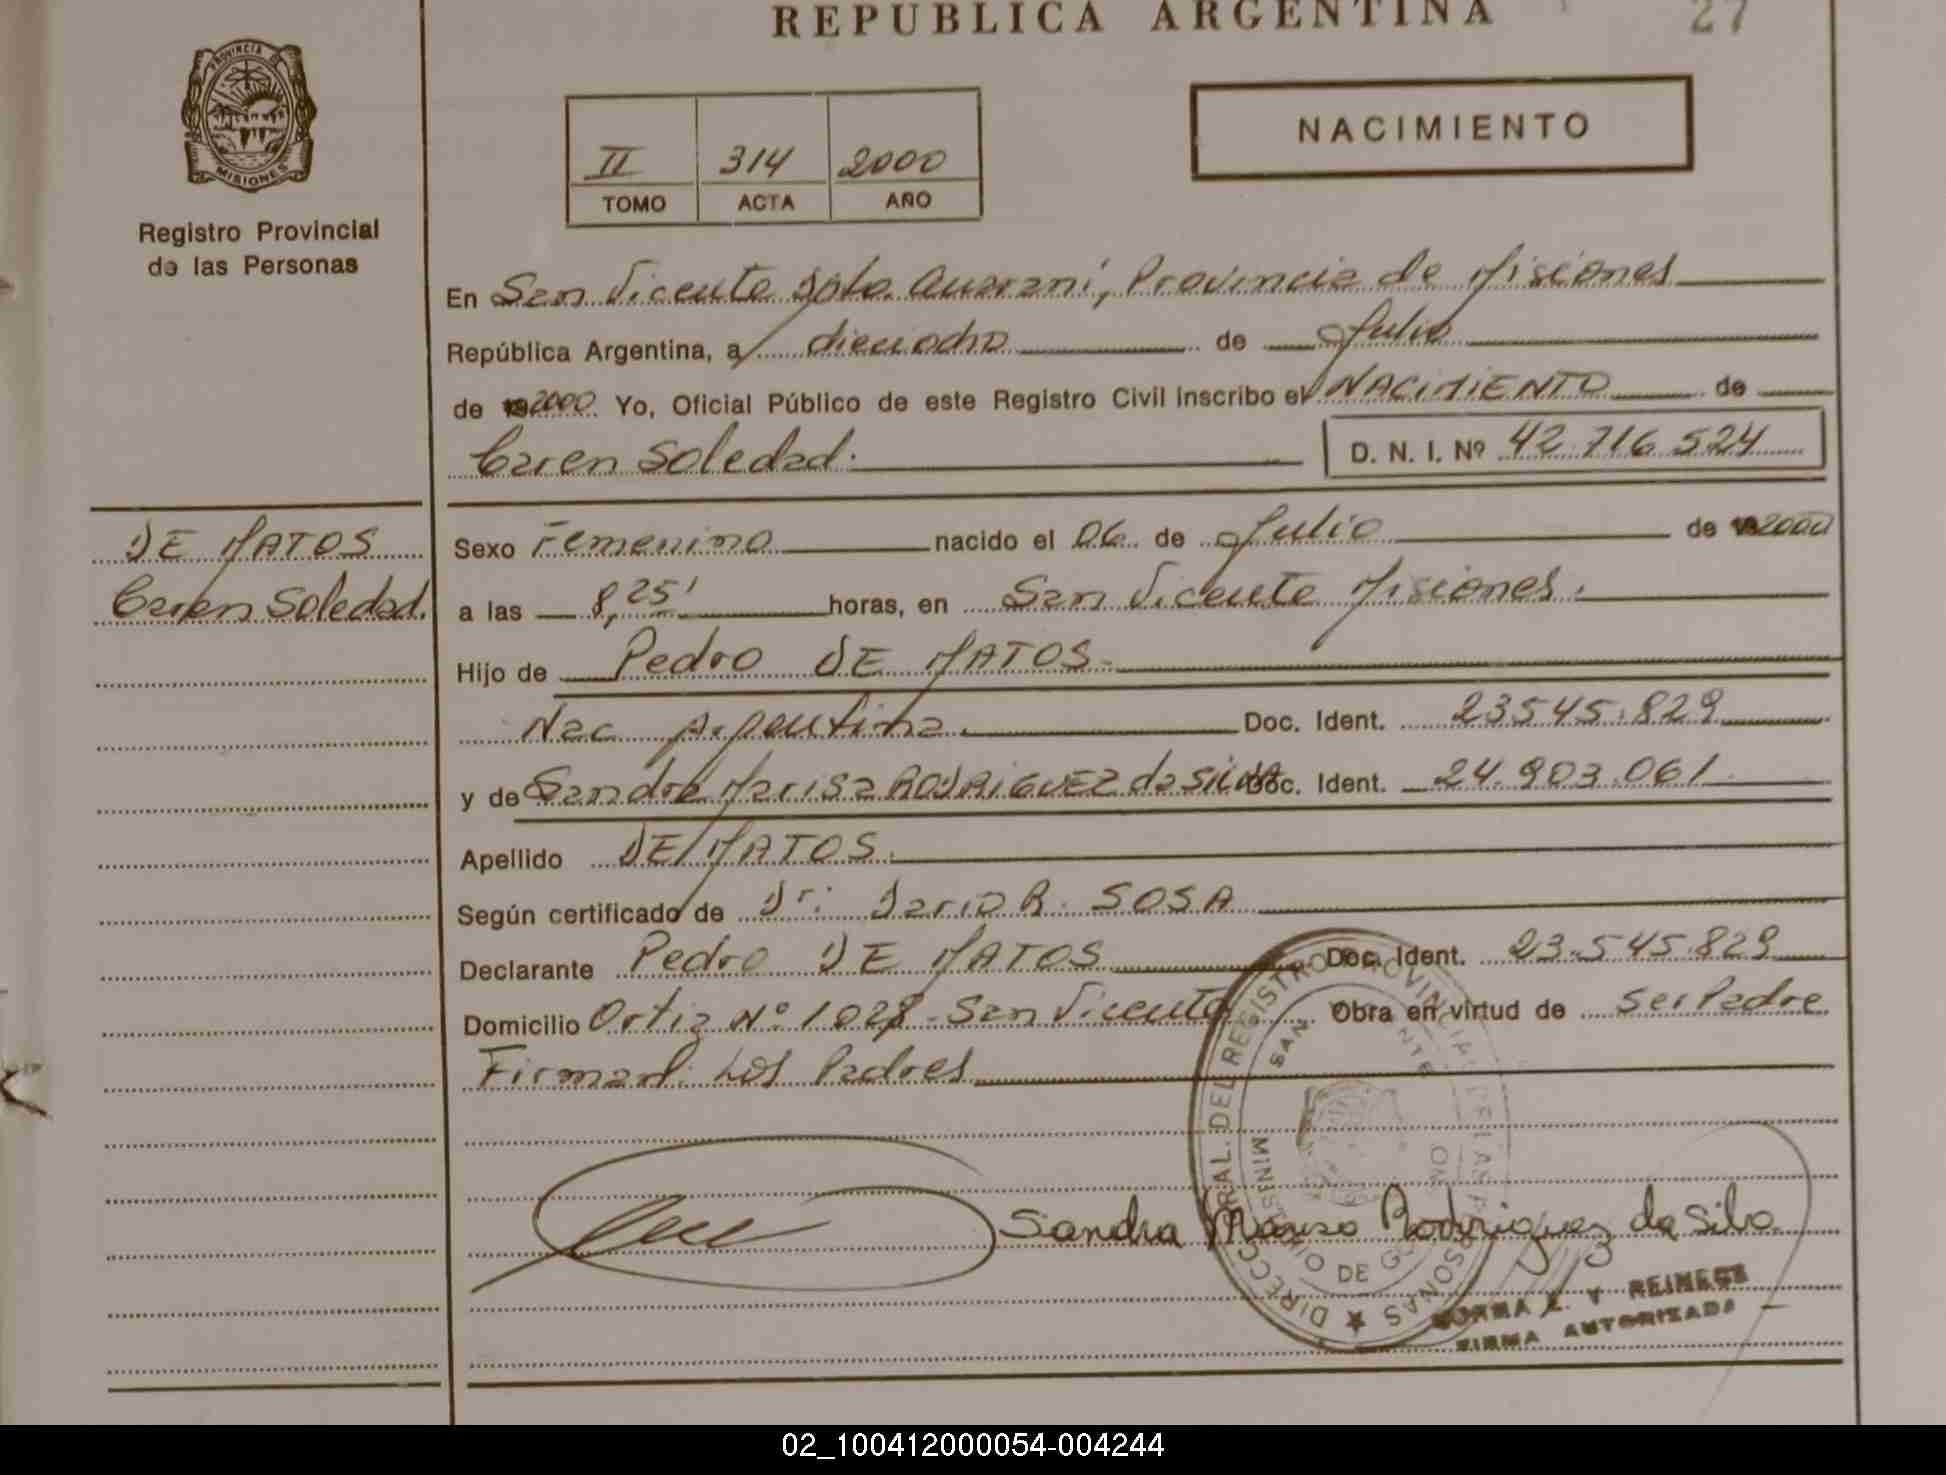 REPUBLICA ARGENTINA
27
PROVINCIA D
MISIONES
Registro Provincial
de las Personas
II 314 2000
TOMO ACTA AÑO
NACIMIENTO
En San Vicente Dpto. Guarani, Provincia de Misiones
República Argentina, a dieciocho de Julio
de 2000 Yo, Oficial Público de este Registro Civil inscribo el NACIMIENTO de
Caren Soledad.
D. N. I. Nº 42.716.524
DE MATOS
Caren Soledad.
Sexo Femenino nacido el 06 de Julio de 2000
a las 8,25' horas, en San Vicente Misiones.
Hijo de Pedro DE MATOS
Nac Argentina. Doc. Ident. 23.545.829
y de Sandra Marisa RODRIGUEZ da Silva Doc. Ident. 24.903.061
Apellido DE MATOS.
Según certificado de Dr. Dario R. SOSA
Declarante Pedro DE MATOS Doc. Ident. 23.545.829
Domicilio Ortiz Nº 1028 - San Vicente Obra en virtud de ser Padre
Firman: Los Padres
DIRECC RAL. DEL REGISTRO PROVINCIAL DE LAS PERSONAS
SAN NTE
MINISTERIO DE GO
Sandra Marisa Rodriguez da Silva
NORMA Y REINECE
FIRMA AUTORIZADA
02_100412000054-004244